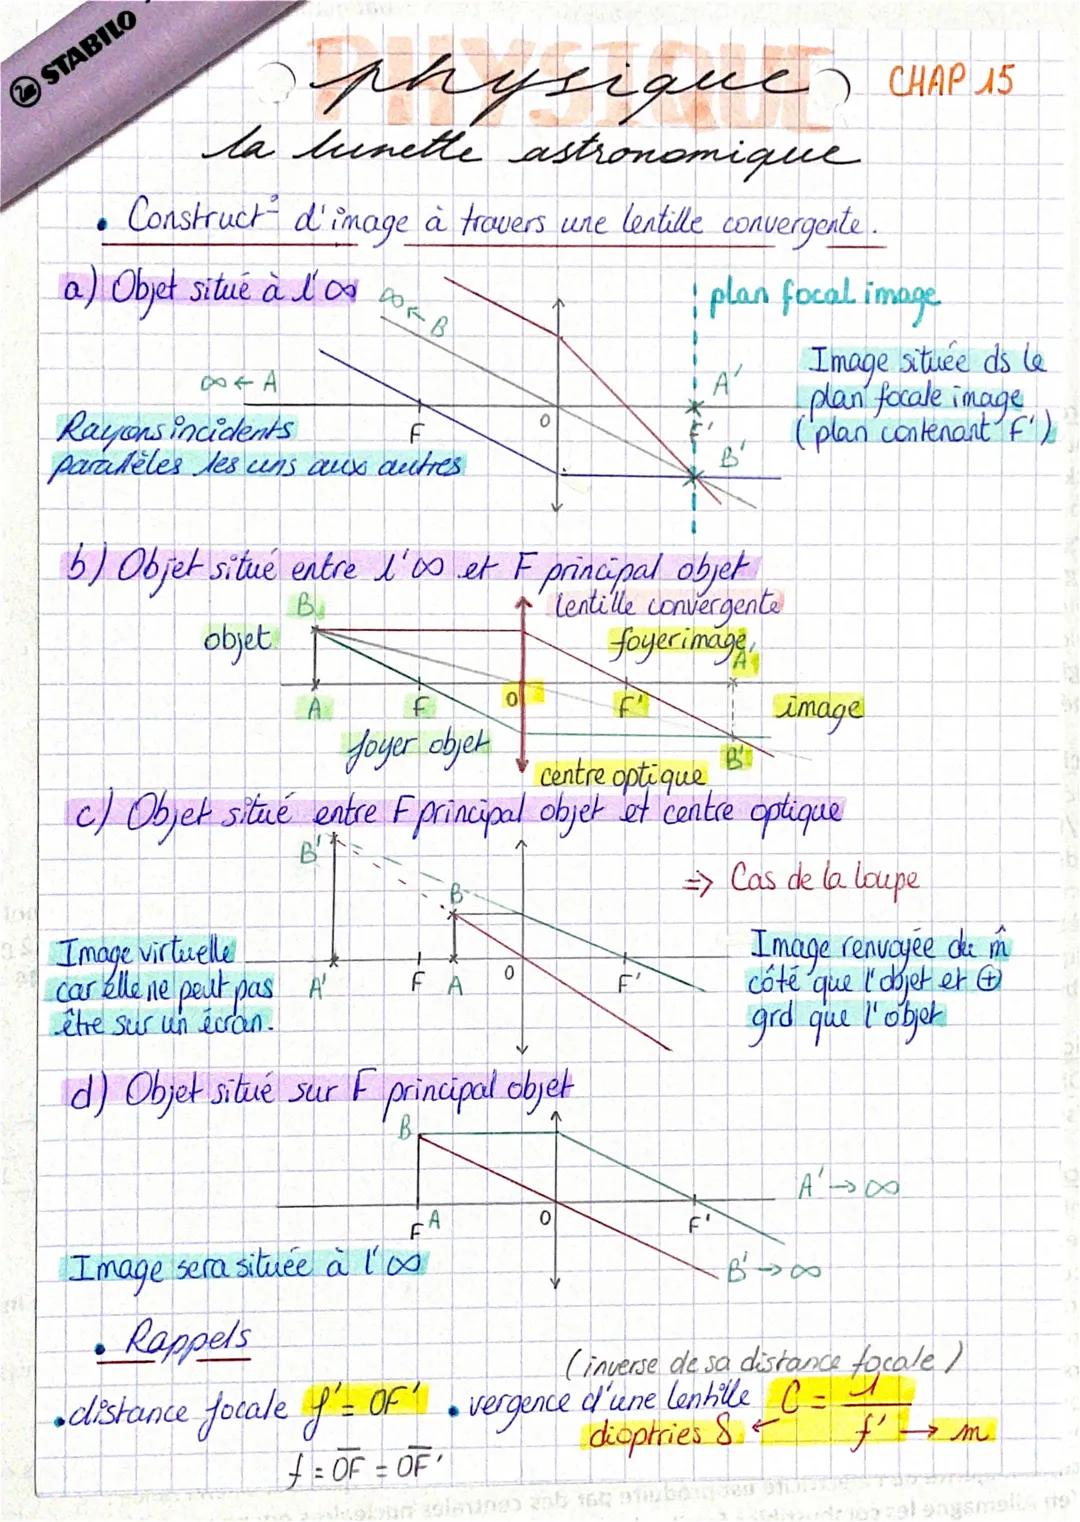 STABILO
PHYSIQUE
physique
CHAP 15
la lunette astronomique
• Construct° d'image à travers une lentille convergente.
a) Objet situé à l'∞
plan focal image
∞ ← B
∞ ← A
F
O
A'
F'
B'
Rayons incidents
parallèles les uns aux autres
Image située ds le
plan focale image
(plan contenant F')
b) Objet situé entre l'∞ et F principal objet
lentille convergente
B
objet
foyer image
A'
A
F
O
F'
image
foyer objet
B'
centre optique
c) Objet situé entre F principal objet et centre optique
B'
B
=> Cas de la loupe
Image virtuelle
car elle ne peut pas
être sur un écran.
A'
F
A
O
F'
Image renvoyée du m̂
côté que l'objet et ⊕
grd que l'objet
d) Objet situé sur F principal objet
B
A' → ∞
F
A
O
F'
B' → ∞
Image sera située à l'∞
• Rappels
(inverse de sa distance focale)
• distance focale f' = OF' • vergence d'une lentille C = 1/f' → m
dioptries δ ←
f = OF = OF'